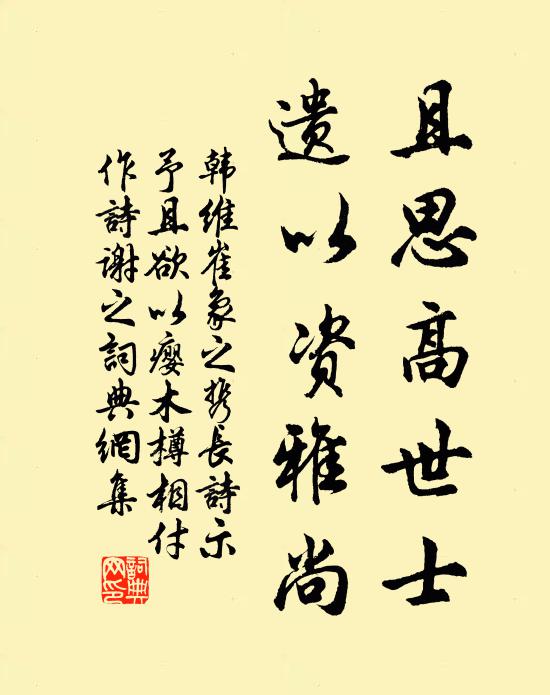 且思高世士
遗以资雅尚
韩维崔象之携長詩示
予且欲以瘿木樽相付
作詩谢之詞典網集
詞典
网印